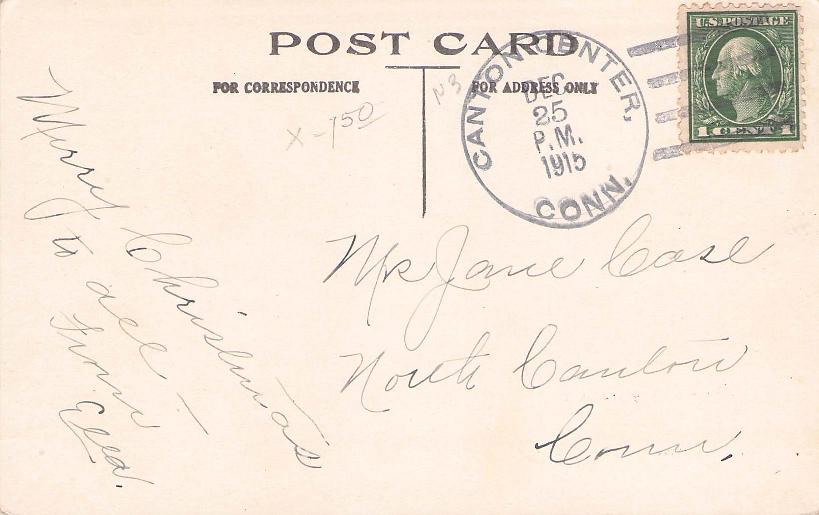 POST CARD
FOR CORRESPONDENCE
FOR ADDRESS ONLY
N3
X-150
CANTON CENTER,
DEC
25
P.M.
1915
CONN.
U.S. POSTAGE
1 CENT 1
Merry Christmas
to all -
From
Ella.
Mrs Jane Case
North Canton
Conn.